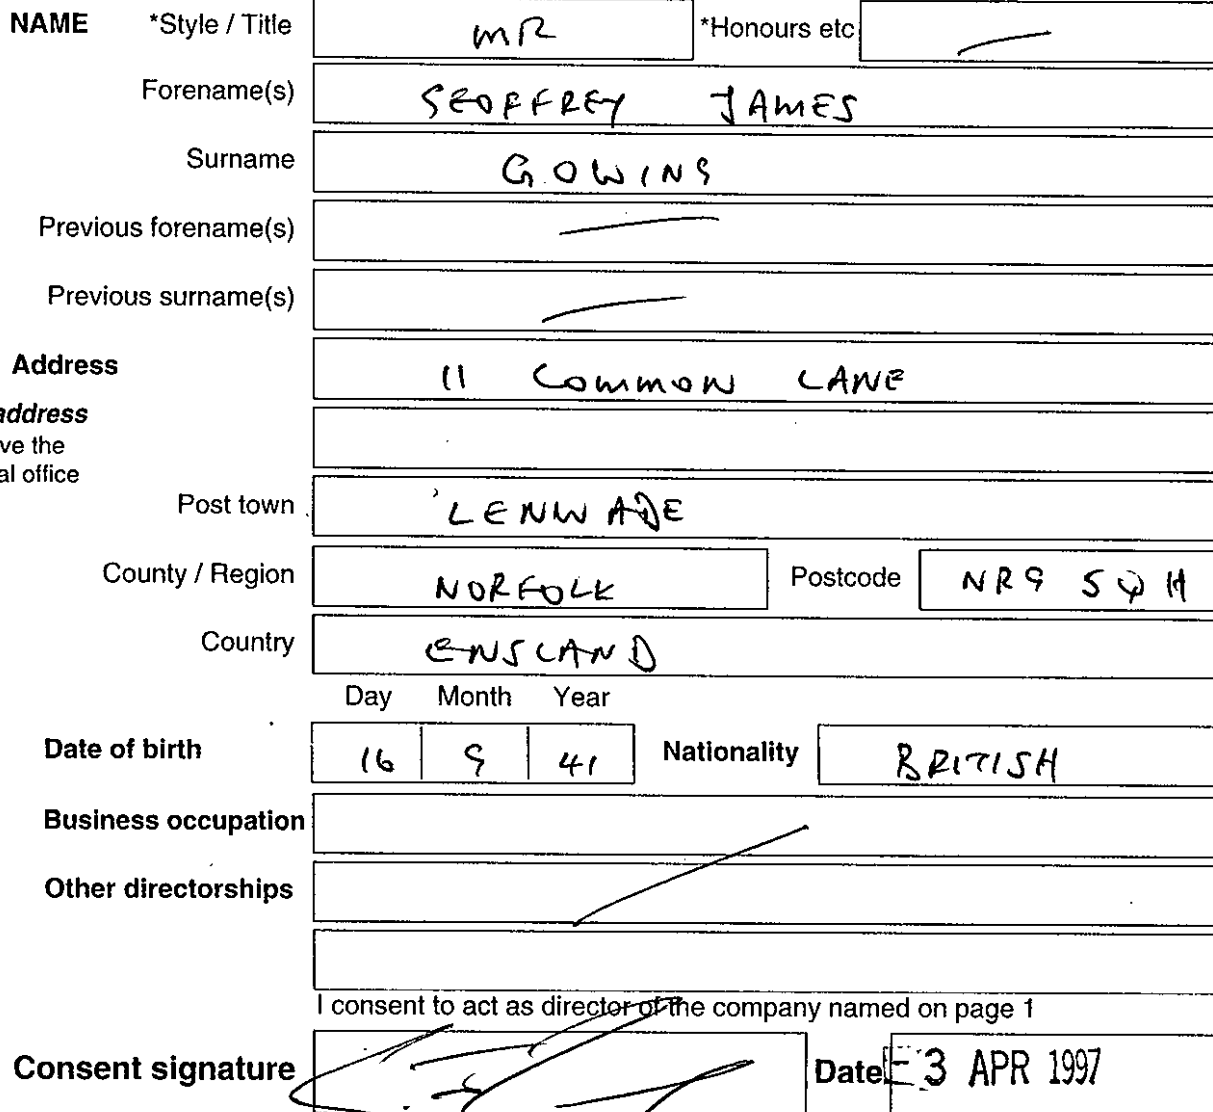 NAME *Style / Title MR *Honours etc
Forename(s) GEOFFREY JAMES
Surname GOWING
Previous forename(s)
Previous surname(s)
Address 11 COMMON LANE
address
ve the
al office
Post town LENWADE
County / Region NORFOLK Postcode NR9 5QH
Country ENGLAND
Day Month Year
Date of birth 16 9 41 Nationality BRITISH
Business occupation
Other directorships
I consent to act as director of the company named on page 1
Consent signature Date - 3 APR 1997